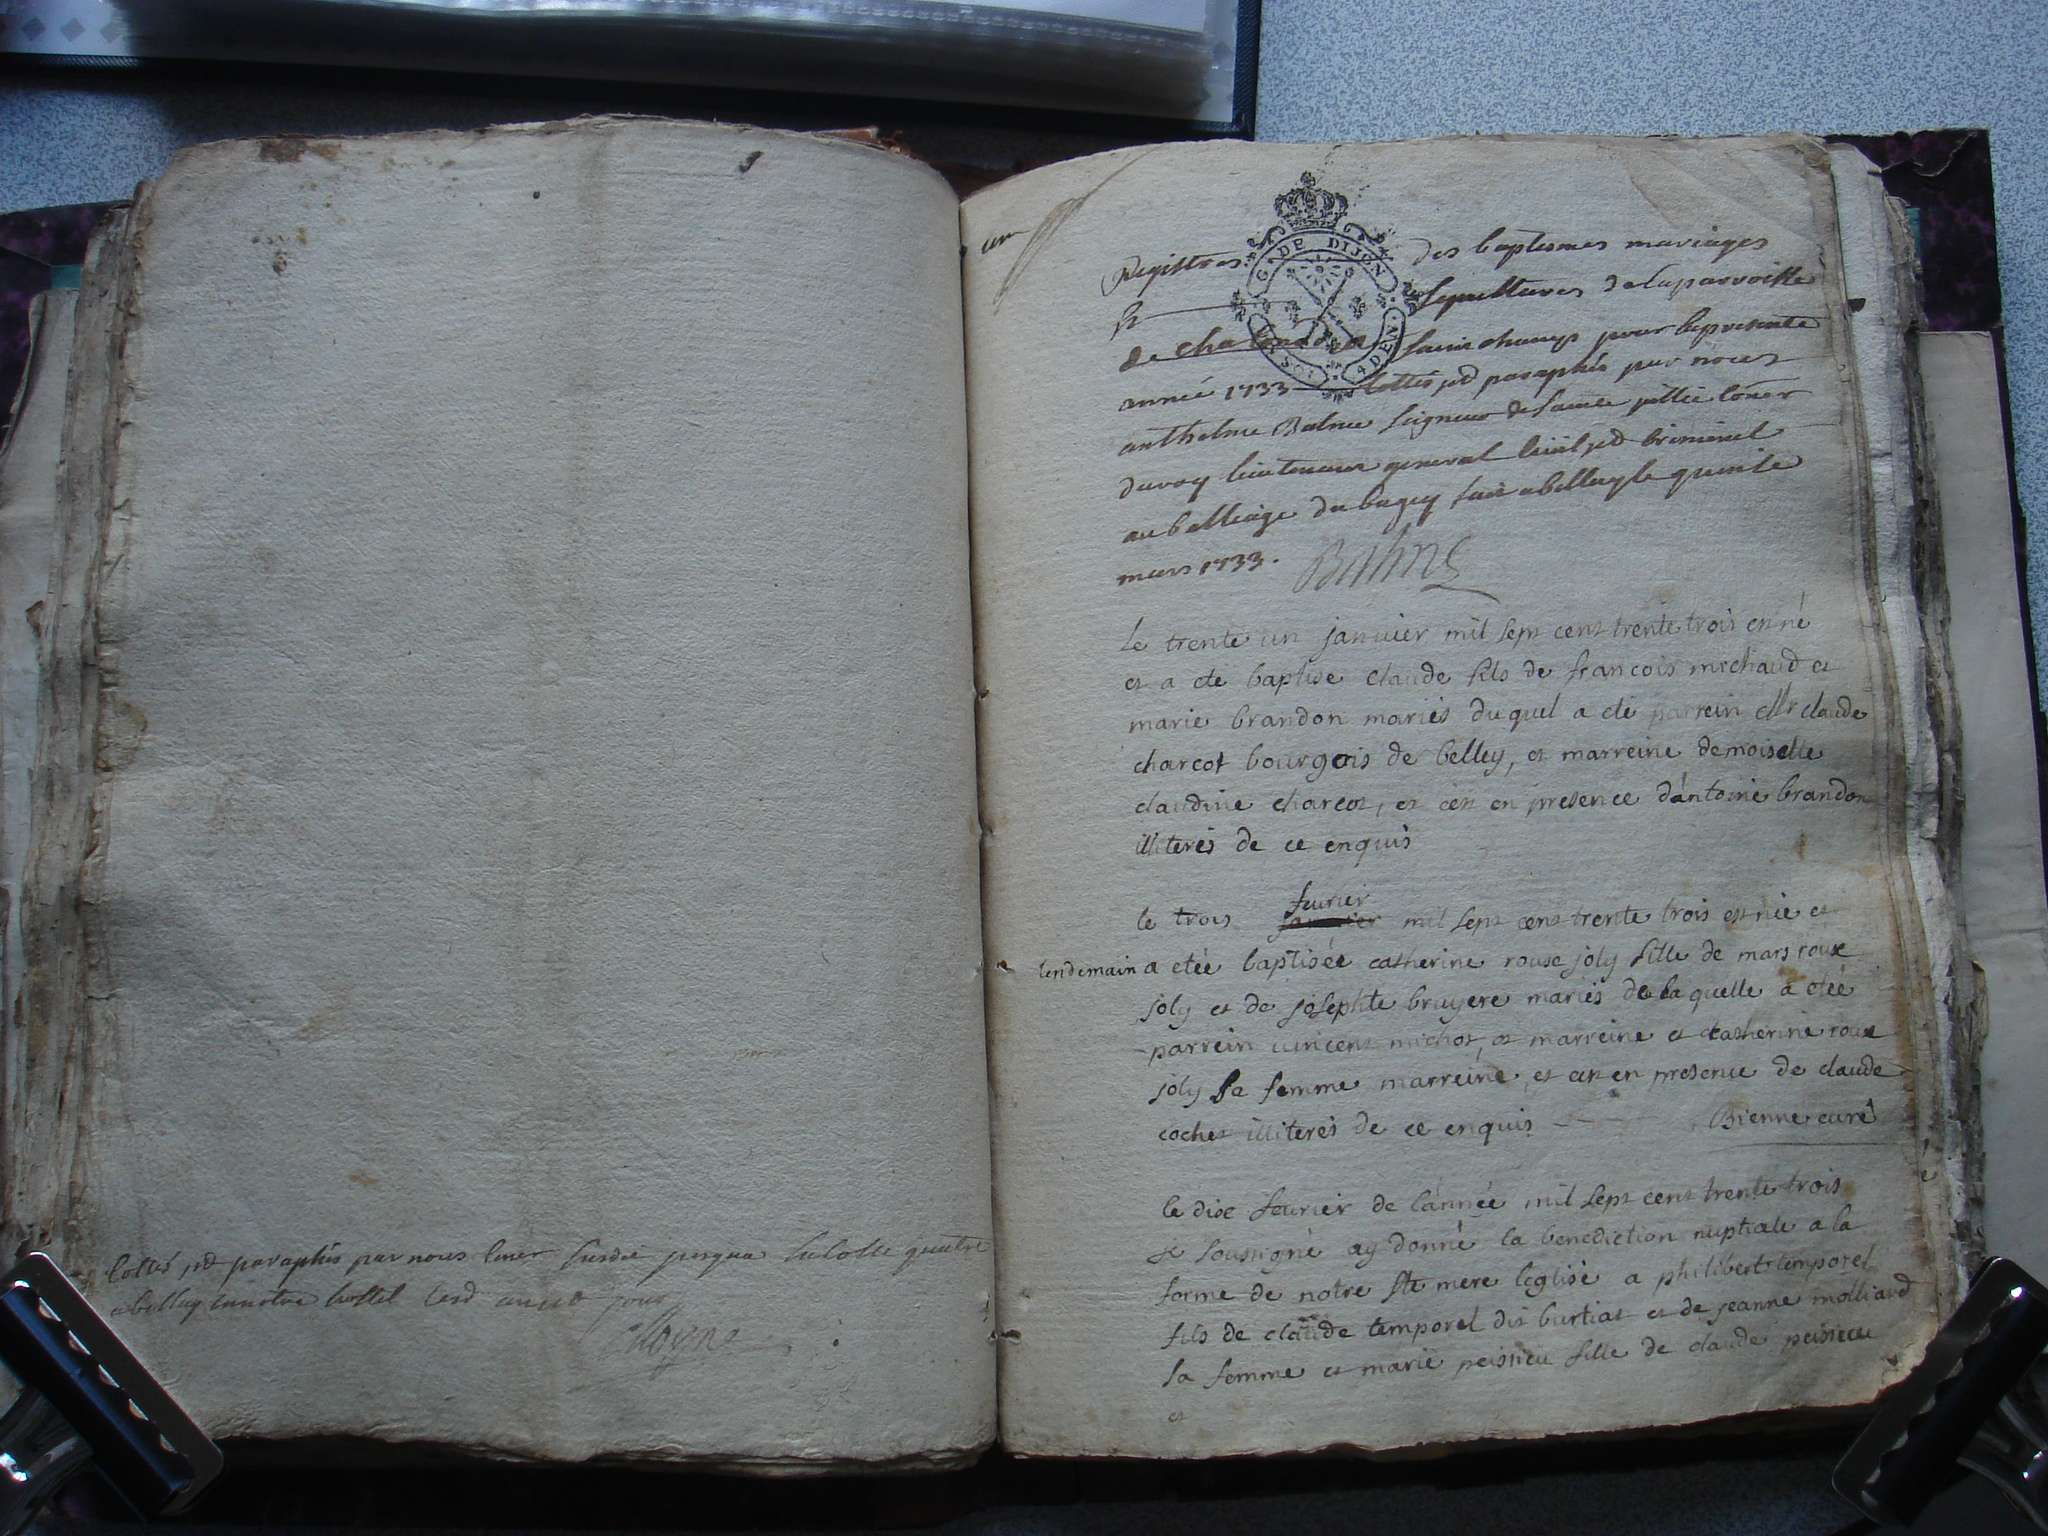 cottés et paraphés par nous susdit jusqua
a belley en notre hostel lesd an et jour
Moyne
Registres des baptesmes mariages
et sepultures de la parroisse
de pour la presente
année 1733 cottés et paraphés par nous
anthelme Balme seigneur de sainte
du roy lieutenant general civil et criminel
au balliage du bugey fait a belley le quinze
mars 1733. Balme
G. DE DIJON
4 DEN
le trente un janvier mil sept cent trente trois est né
et a eté baptise claude fils de francois michaud et
marie brandon mariés du quel a eté parrein Mr claude
charcot bourgois de belley, et marreine demoiselle
claudine charcot, et cest en presence dántoine brandon
illiterés de ce enquis
fevrier
le trois janvier mil sept cent trente trois est née et
lendemain a etée baptisée catherine rouse joly fille de mars roux
joly et de josephte bruyere mariés de la quelle a etée
parrein vincent michot, et marreine et catherine roux
joly sa femme marreine, et cest en presence de claude
cochet illiterés de ce enquis Brenne curé
le dix fevrier de lánnée mil sept cent trente trois
je soussigné ay donné la benediction nuptiale a la
forme de notre Ste mere léglise a philibert temporel
fils de claude temporel dit burtiat et de jeanne molliard
sa femme et marie peissieu fille de claude peissieu
et